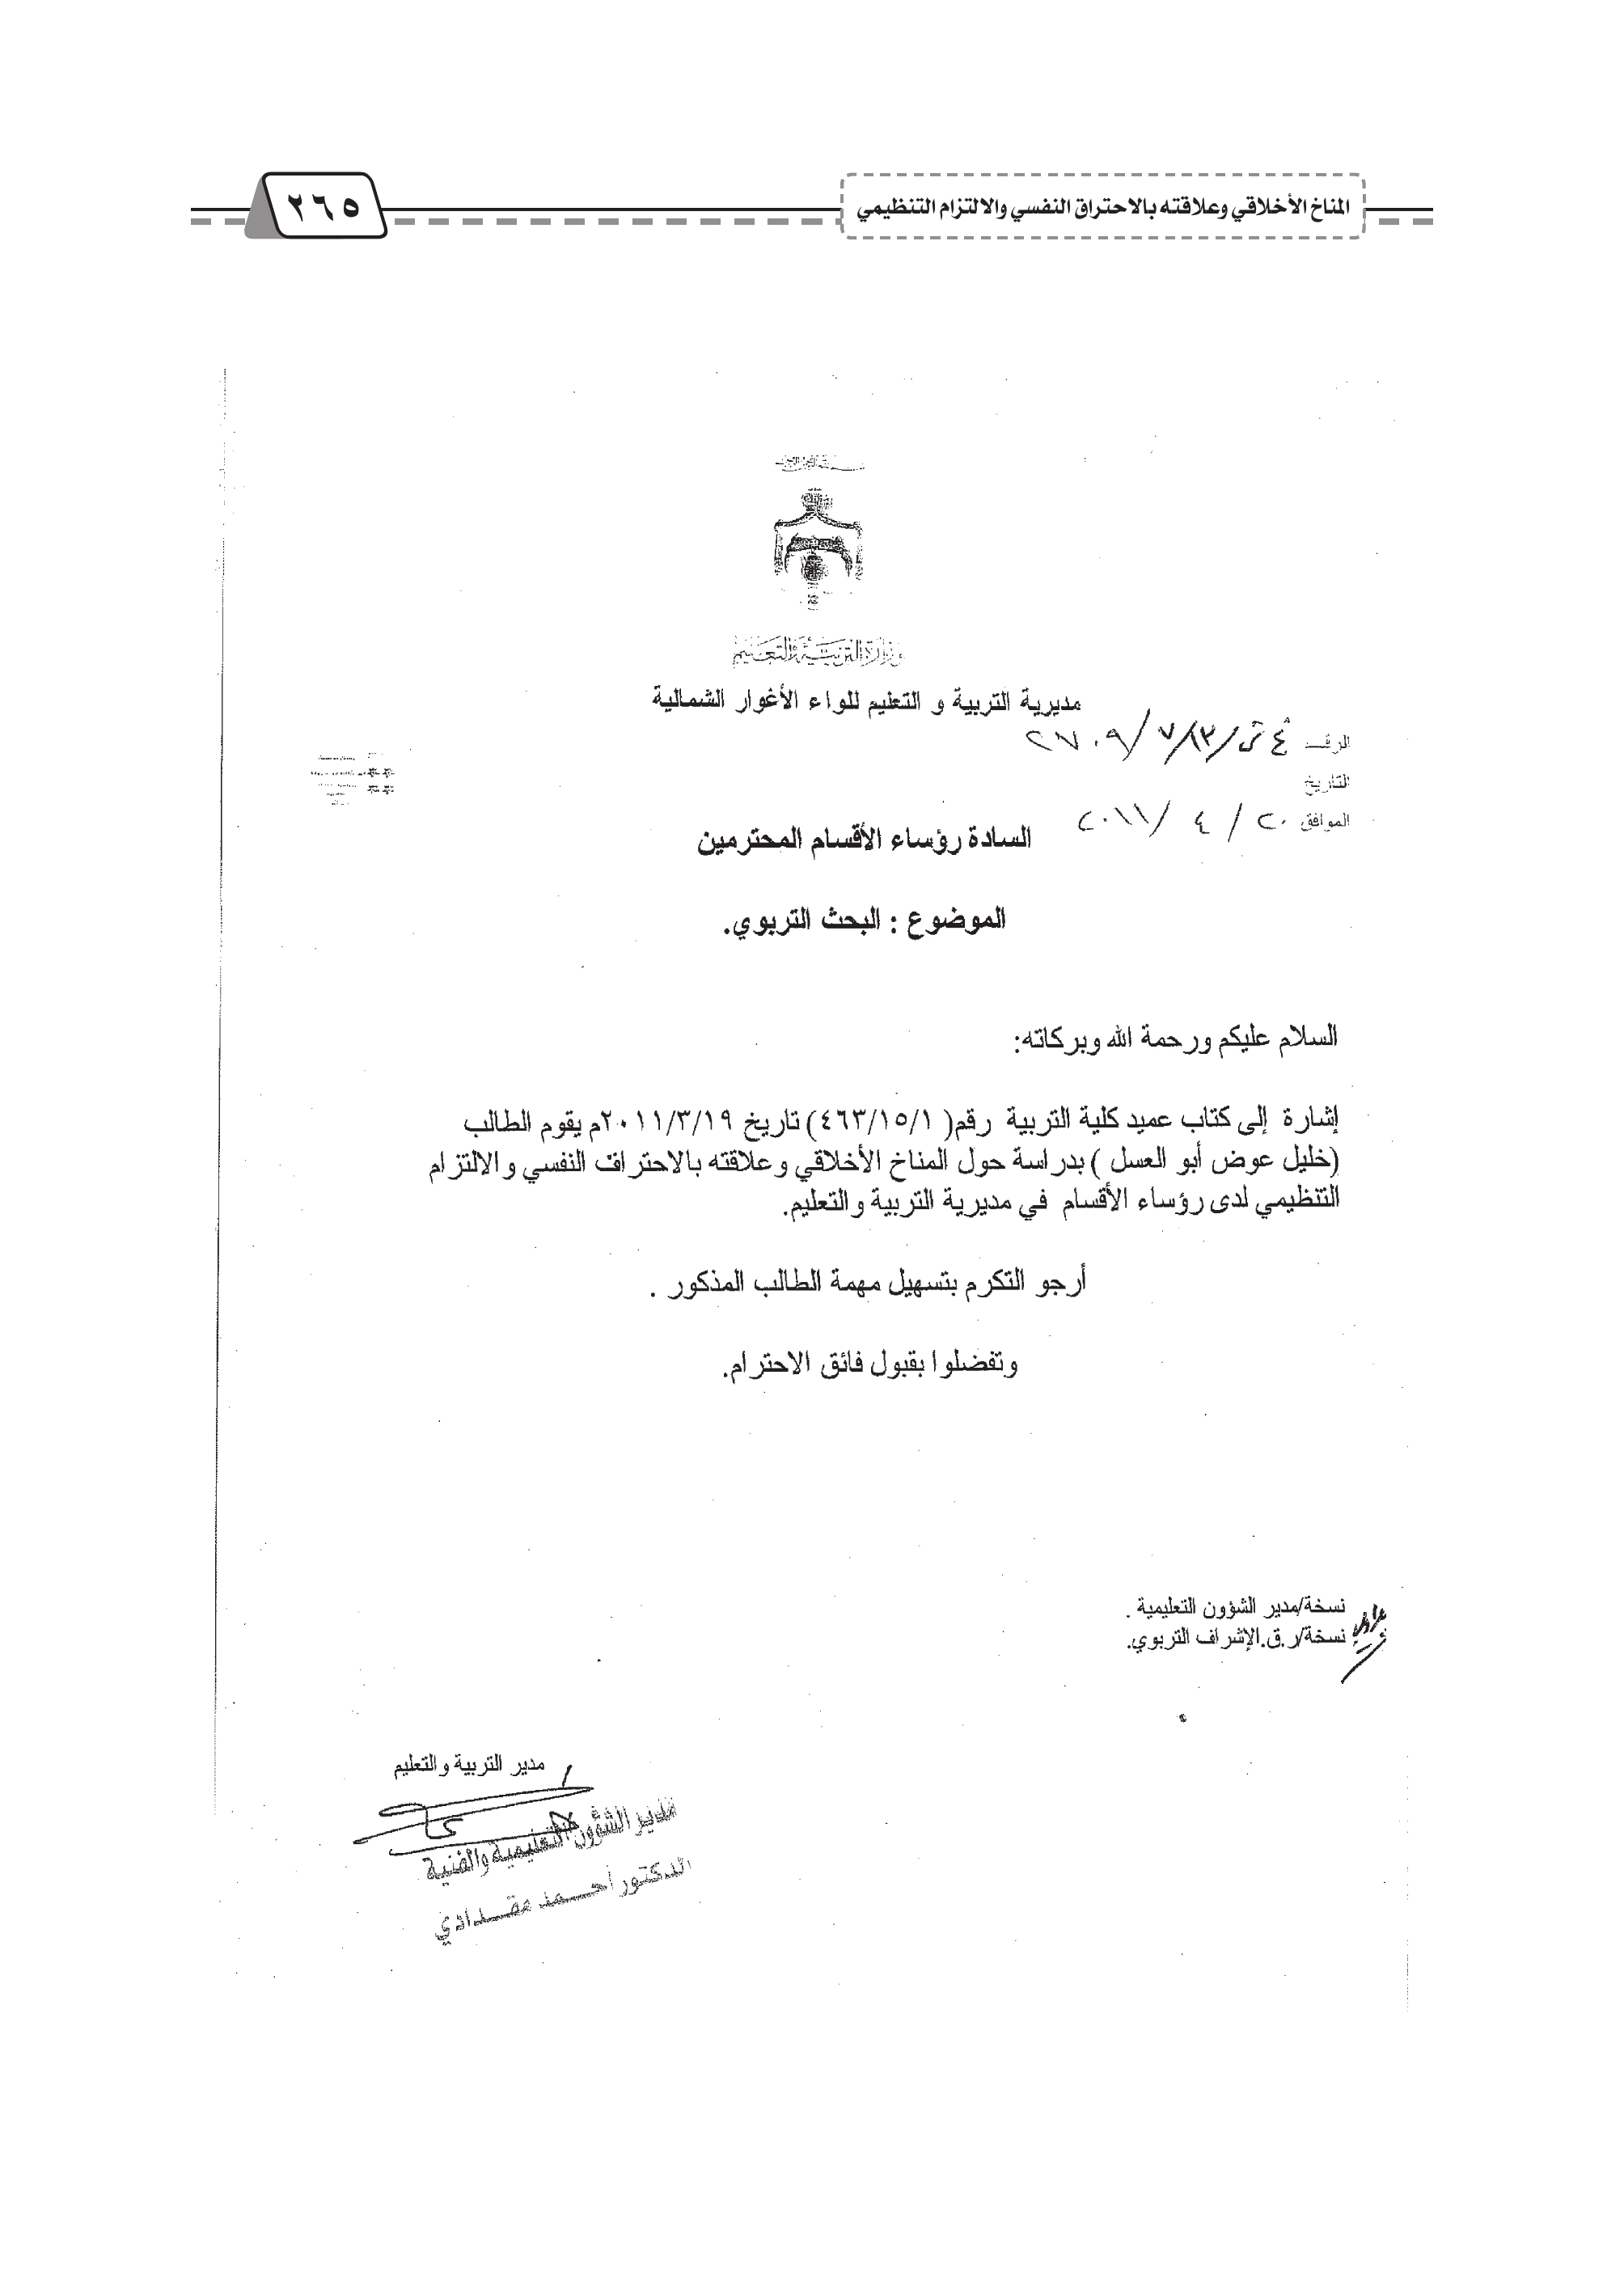 المناخ الأخلاقي وعلاقته بالاحتراق النفسي والالتزام التنظيمي
٢٦٥
وزارة التربية والتعليم
مديرية التربية و التعليم للواء الأغوار الشمالية
الرقم
التاريخ
الموافق ٢٠ / ٤ / ٢٠١١
السادة رؤساء الأقسام المحترمين
الموضوع : البحث التربوي.
السلام عليكم ورحمة الله وبركاته:
إشارة إلى كتاب عميد كلية التربية رقم( ٤٦٣/١٥/١) تاريخ ٢٠١١/٣/١٩م يقوم الطالب
(خليل عوض أبو العسل ) بدراسة حول المناخ الأخلاقي وعلاقته بالاحتراف النفسي والالتزام
التنظيمي لدى رؤساء الأقسام في مديرية التربية والتعليم.
أرجو التكرم بتسهيل مهمة الطالب المذكور .
وتفضلوا بقبول فائق الاحترام.
نسخة/مدير الشؤون التعليمية .
نسخة/ر.ق.الإشراف التربوي.
مدير التربية والتعليم
مدير الشؤون التعليمية والفنية
الدكتور أحمد مقدادي